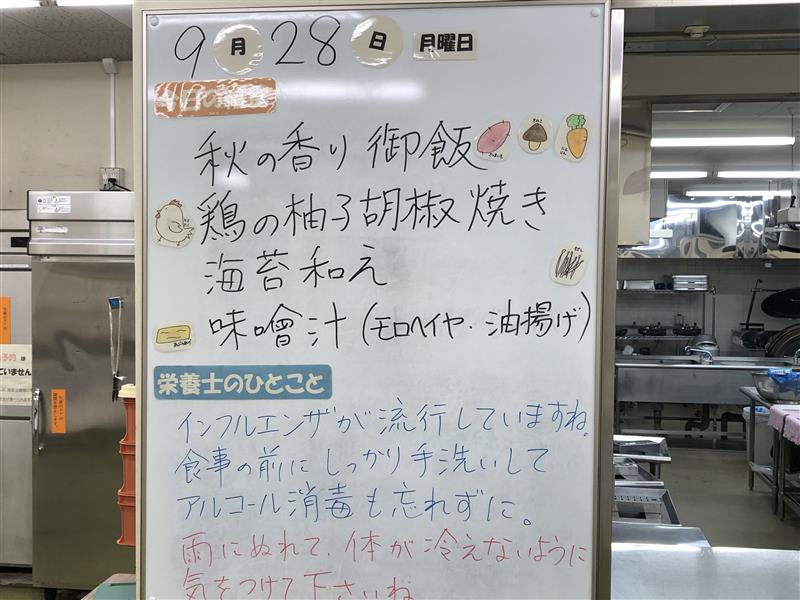 9月28日 月曜日
秋の香り御飯
鶏の柚子胡椒焼き
海苔和え
味噌汁(モロヘイヤ・油揚げ)
栄養士のひとこと
インフルエンザが流行していますね。
食事の前にしっかり手洗いして
アルコール消毒も忘れずに。
雨にぬれて、体が冷えないように
気をつけて下さいね